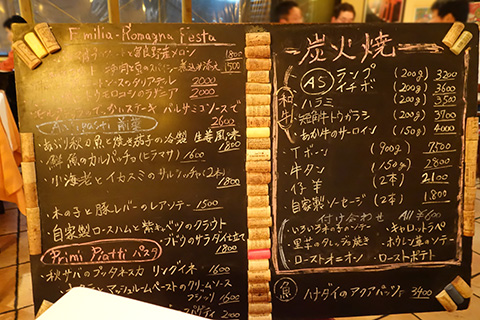 Emilia-Romagna Festa
メロン 1800
1500
ラグーソースのタリアテレ 2000
ラザニア 2000
バルサミコソースで
2600
Antipasti 前菜
あぶり秋刀魚と焼き茄子の冷製 生姜風味
1800
鮮魚のカルパッチョ(ヒラマサ) 1600
小海老とイカスミのサルシッチャ(2本)
1800
木の子と豚レバーのレアソテー 1500
自家製ロースハムと紫キャベツのクラウト
ブドウのサラダ仕立て
1800
Primi Piatti パスタ
秋サバのプッタネスカ リングイネ 1600
マッシュルームペーストのクリームソース
1600
2100
炭火焼
和牛
A5 ランプ (200g) 3200
イチボ (200g) 3600
ハラミ (200g) 3500
短角牛トウガラシ (200g) 3700
あか牛のサーロイン (150g) 4000
Tボーン (900g) 7500
牛タン (150g) 2800
仔羊 (2本) 2100
自家製ソーセージ (2本) 1,800
付け合わせ All ¥600
いろいろ木の子のソテー
キャロットラペ
里芋のクレッシェ焼き
ホウレン草のソテー
ローストオニオン
ローストポテト
魚 ハナダイのアクアパッツァ 3400